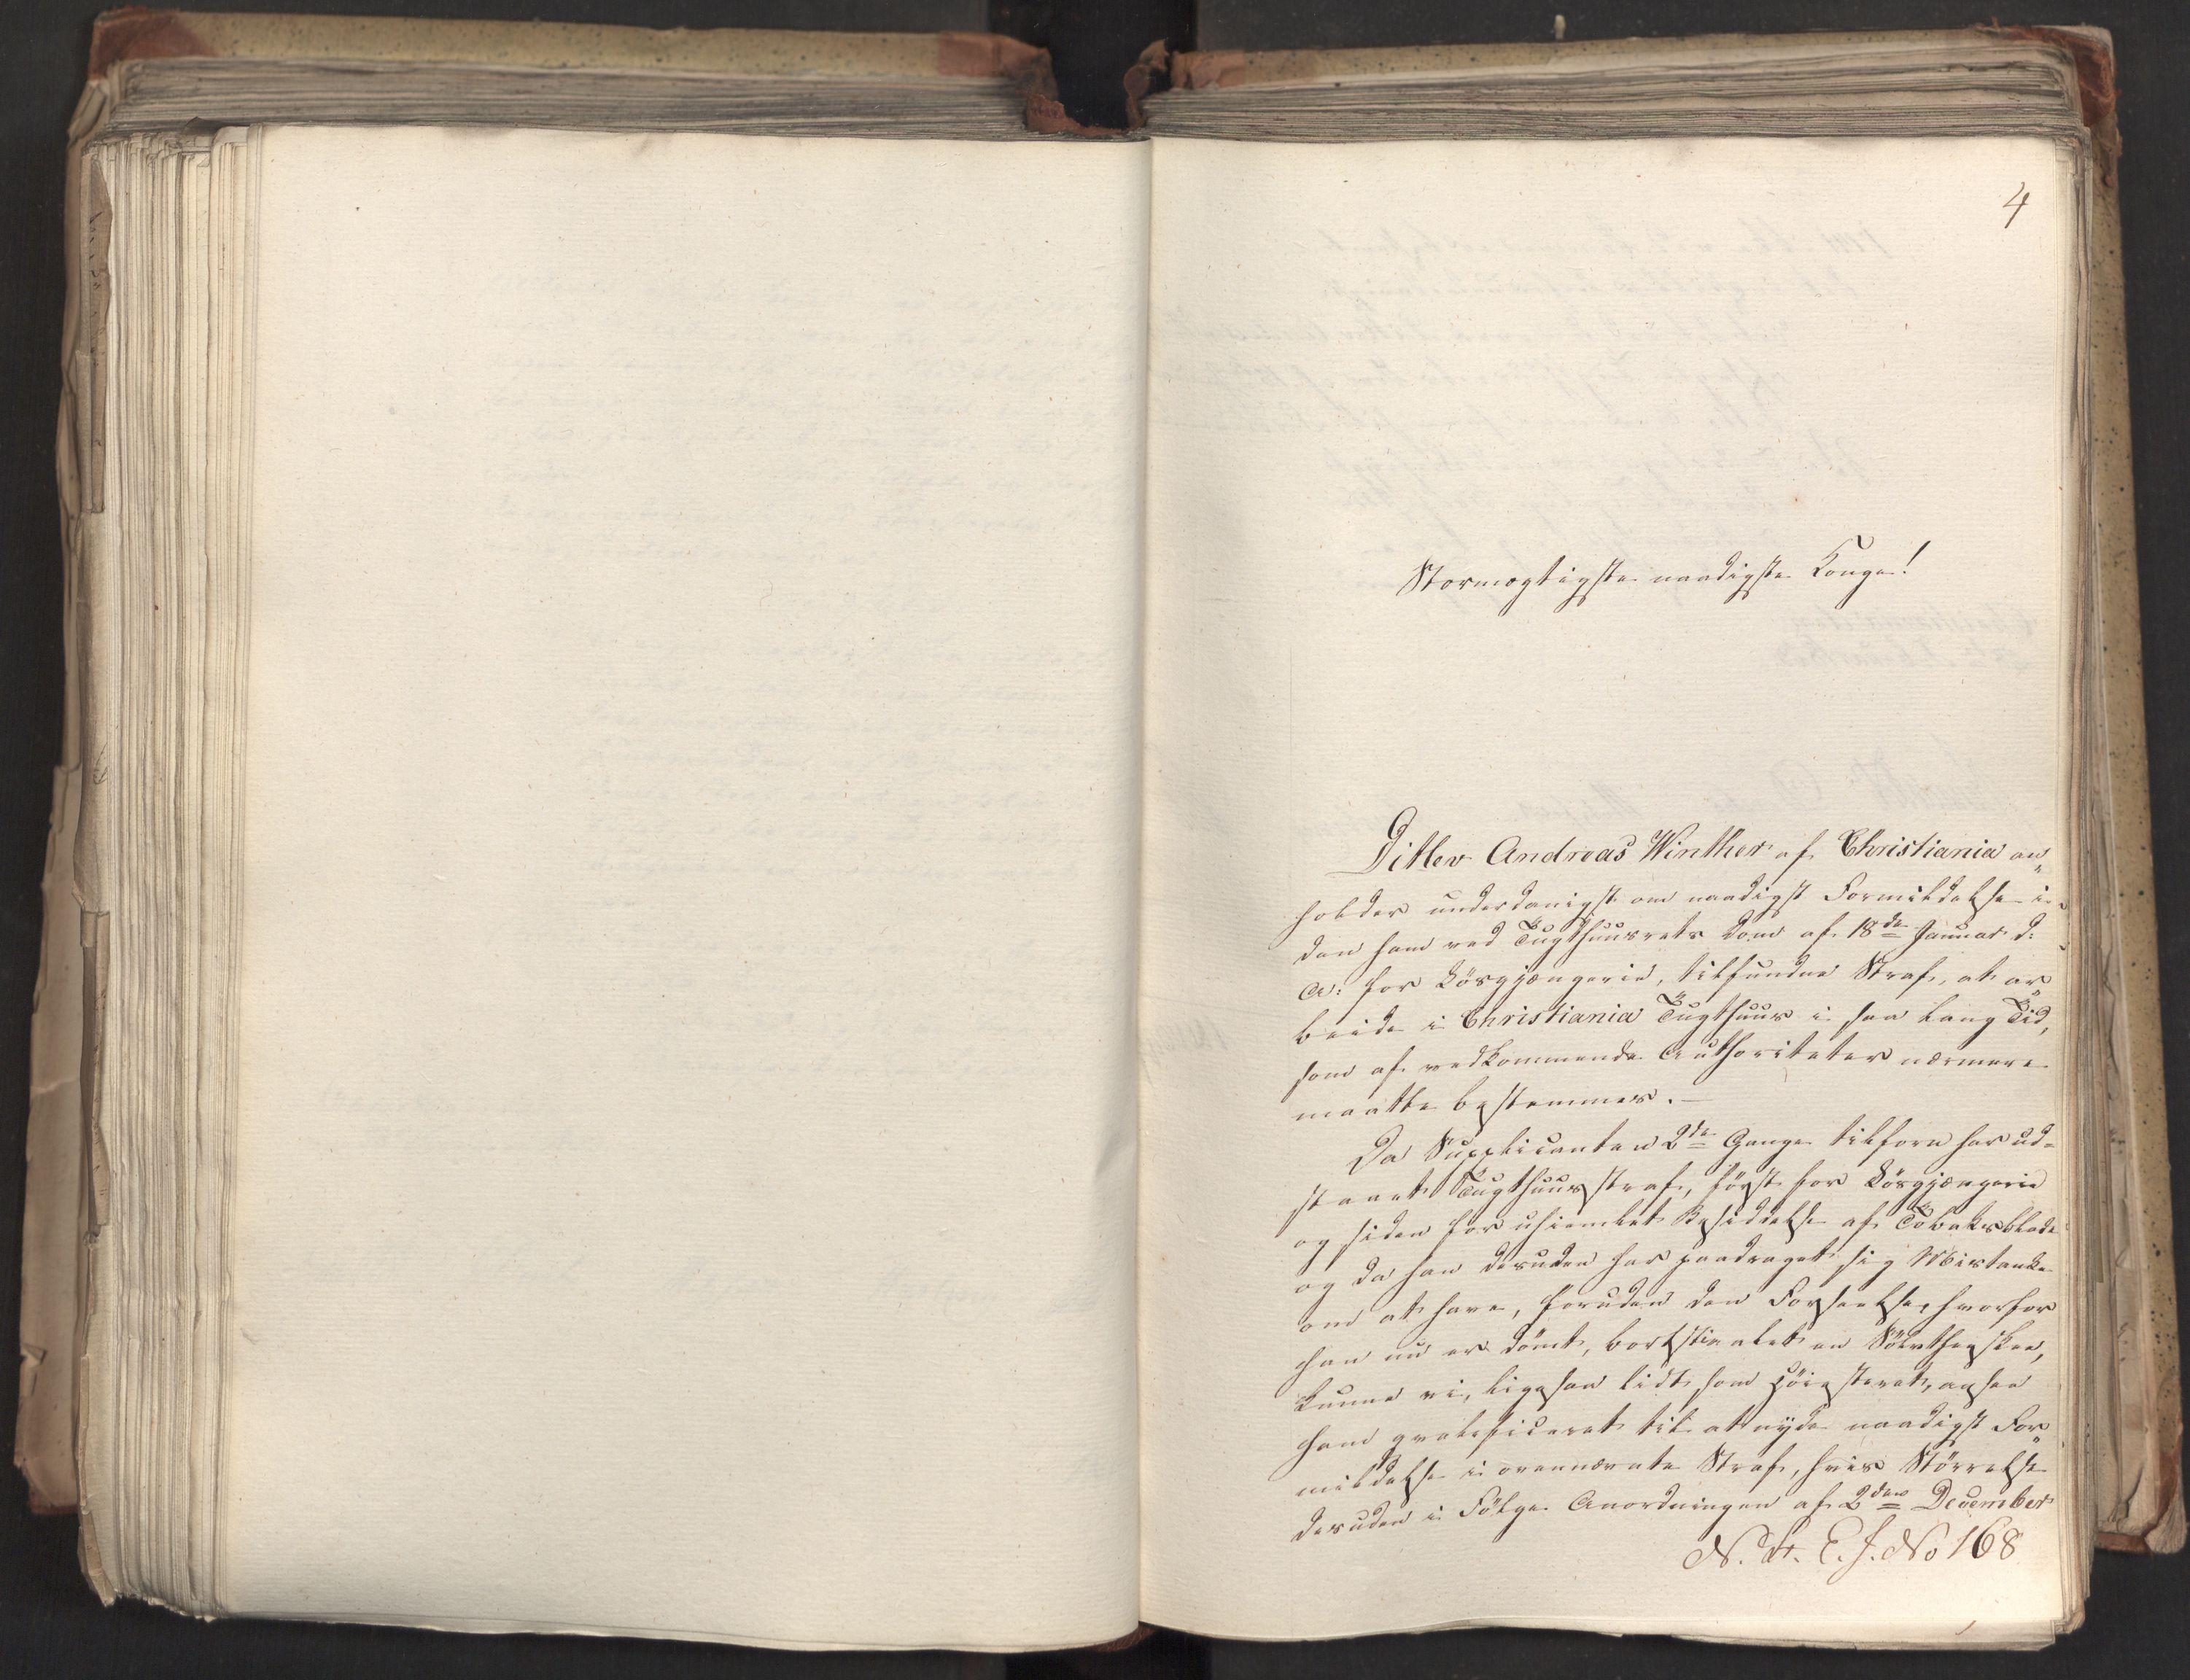 4
Stormægtigste naadigste Konge!
Ditlev Andreas Winther af Christiania an„
holder underdanigst om naadigst Formildelse i
den ham ved Tugthuusrets Dom af 18de Januar d:
A: for Lösgjængerie, tilfundne Straf, at ar„
beide i Christiania Tugthuus i saa lang Tid,
som af vedkommende Authoriteter nærmere
maatte bestemmes. —
Da Supplicanten 2de Gange tilforn har ud-
staaet Tugthuusstraf, först for Lösgjængerie
og siden for uhiemlet Besiddelse af Tobaksblade
og da han desuden har paadraget sig Mistanke
om at have, foruden den Forseelse, hvorfor
han nu er dömt, bortstiaalet en Sölvtheeskee,
kunne vi, ligesaa lidt som Höiesteret, ansee
ham qvalificeret til at nyde naadigst For„
mildelse i ovennævnte Straf, hvis Störrelse
desuden i Fölge Anordningen af 2den December
N. St. E. J. No 168